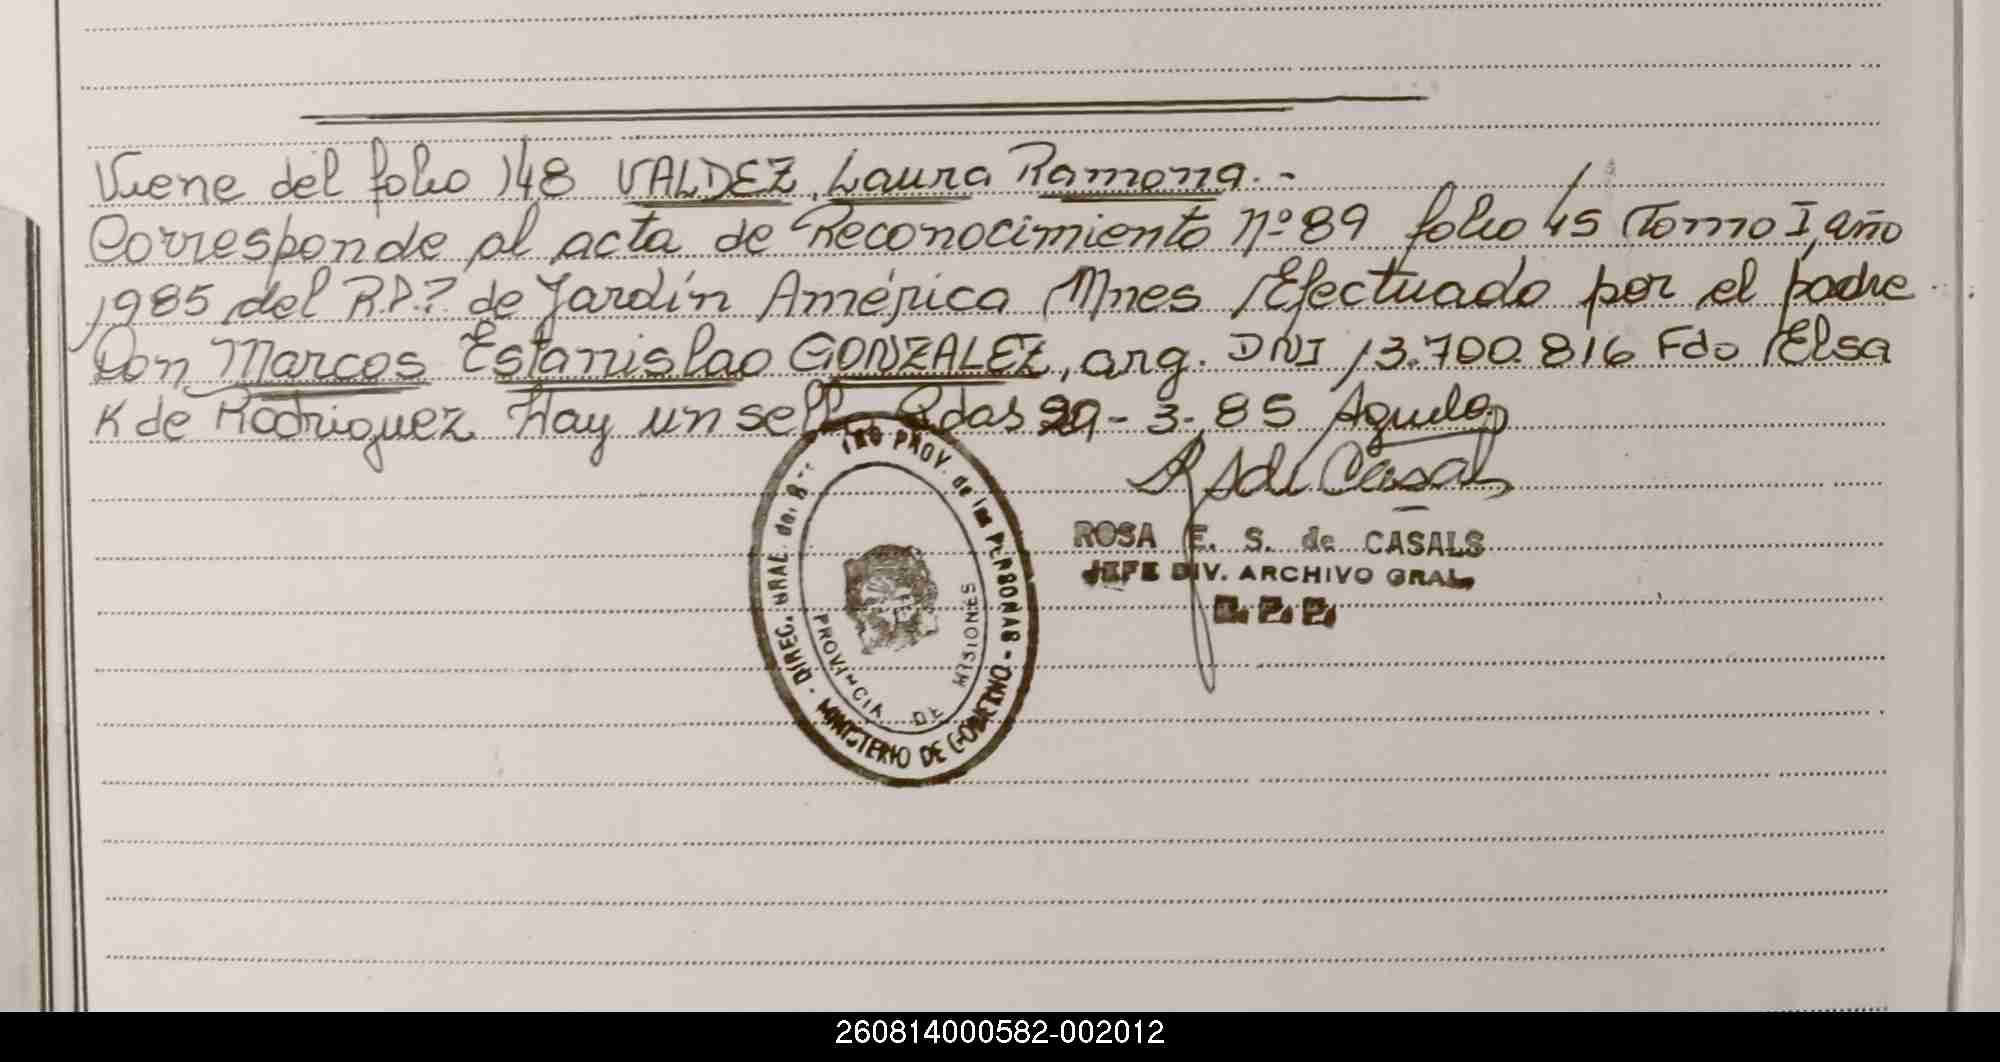 Viene del folio 148 VALDEZ, Laura Ramona.-
Corresponde al acta de Reconocimiento Nº 89 folio 45 Tomo I, año
1985 del R.P.P. de Jardín América Mnes Efectuado por el padre
Don Marcos Estanislao GONZALEZ, arg. DNI 13.700.816 Fdo Elsa
K de Rodriguez Hay un sello Pdas 29-3-85
ROSA E. S. de CASALS
JEFE DIV. ARCHIVO GRAL.
R. P. P.
DIREC. GRAL. del PROV. de las PERSONAS - MINISTERIO DE GOBIERNO -
PROVINCIA DE MISIONES
260814000582-002012